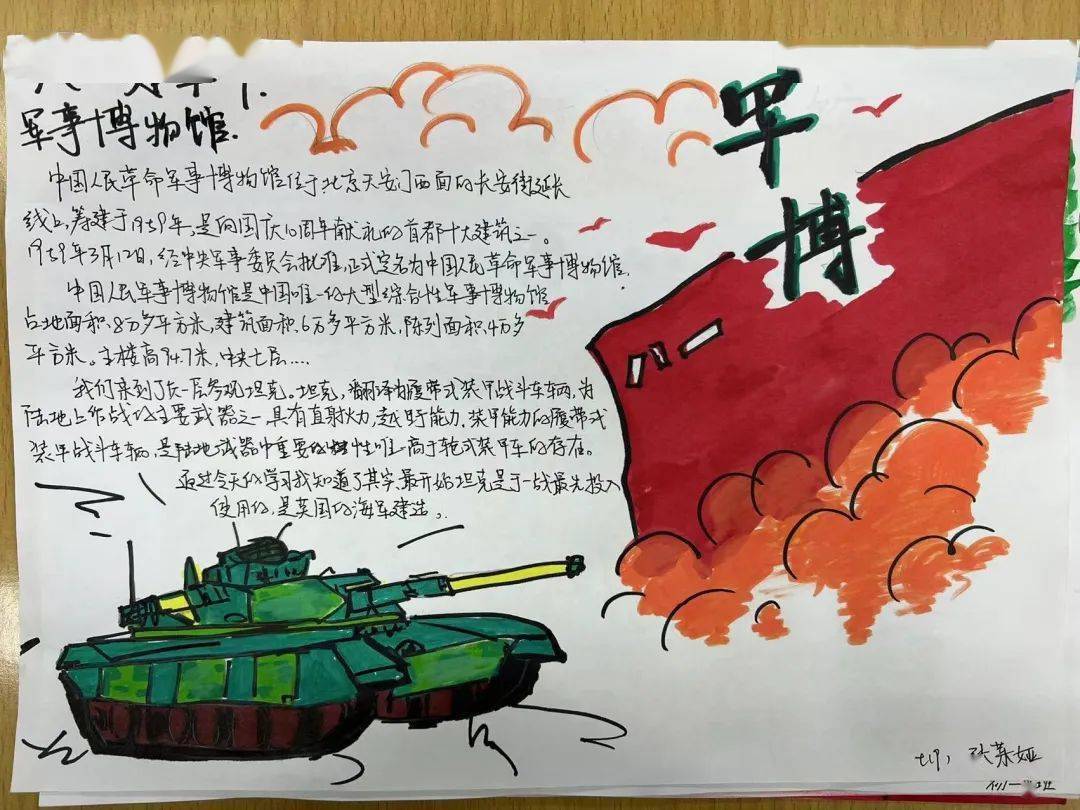 军事博物馆.
军
博
中国人民革命军事博物馆位于北京天安门西面的长安街延长
线上,筹建于1959年,是向国庆10周年献礼的首都十大建筑之一。
1959年3月12日,经中央军事委员会批准,正式定名为中国人民革命军事博物馆.
中国人民军事博物馆是中国唯一的大型综合性军事博物馆
占地面积.8万多平方米,建筑面积.6万多平方米,陈列面积.4万多
平方米。主楼高94.7米,中央七层....
我们来到了负一层参观坦克。坦克,翻译为履带式装甲战斗车车辆,为
陆地上作战的主要武器之一具有直射火力,越野能力,装甲能力的履带式
装甲战斗车辆,是陆地武器中重要的性唯一高于轮式装甲车的存在。
通过今天的学习我知道了其实最开始坦克是于一战最先投入
使用的,是英国的海军建造,.
八一